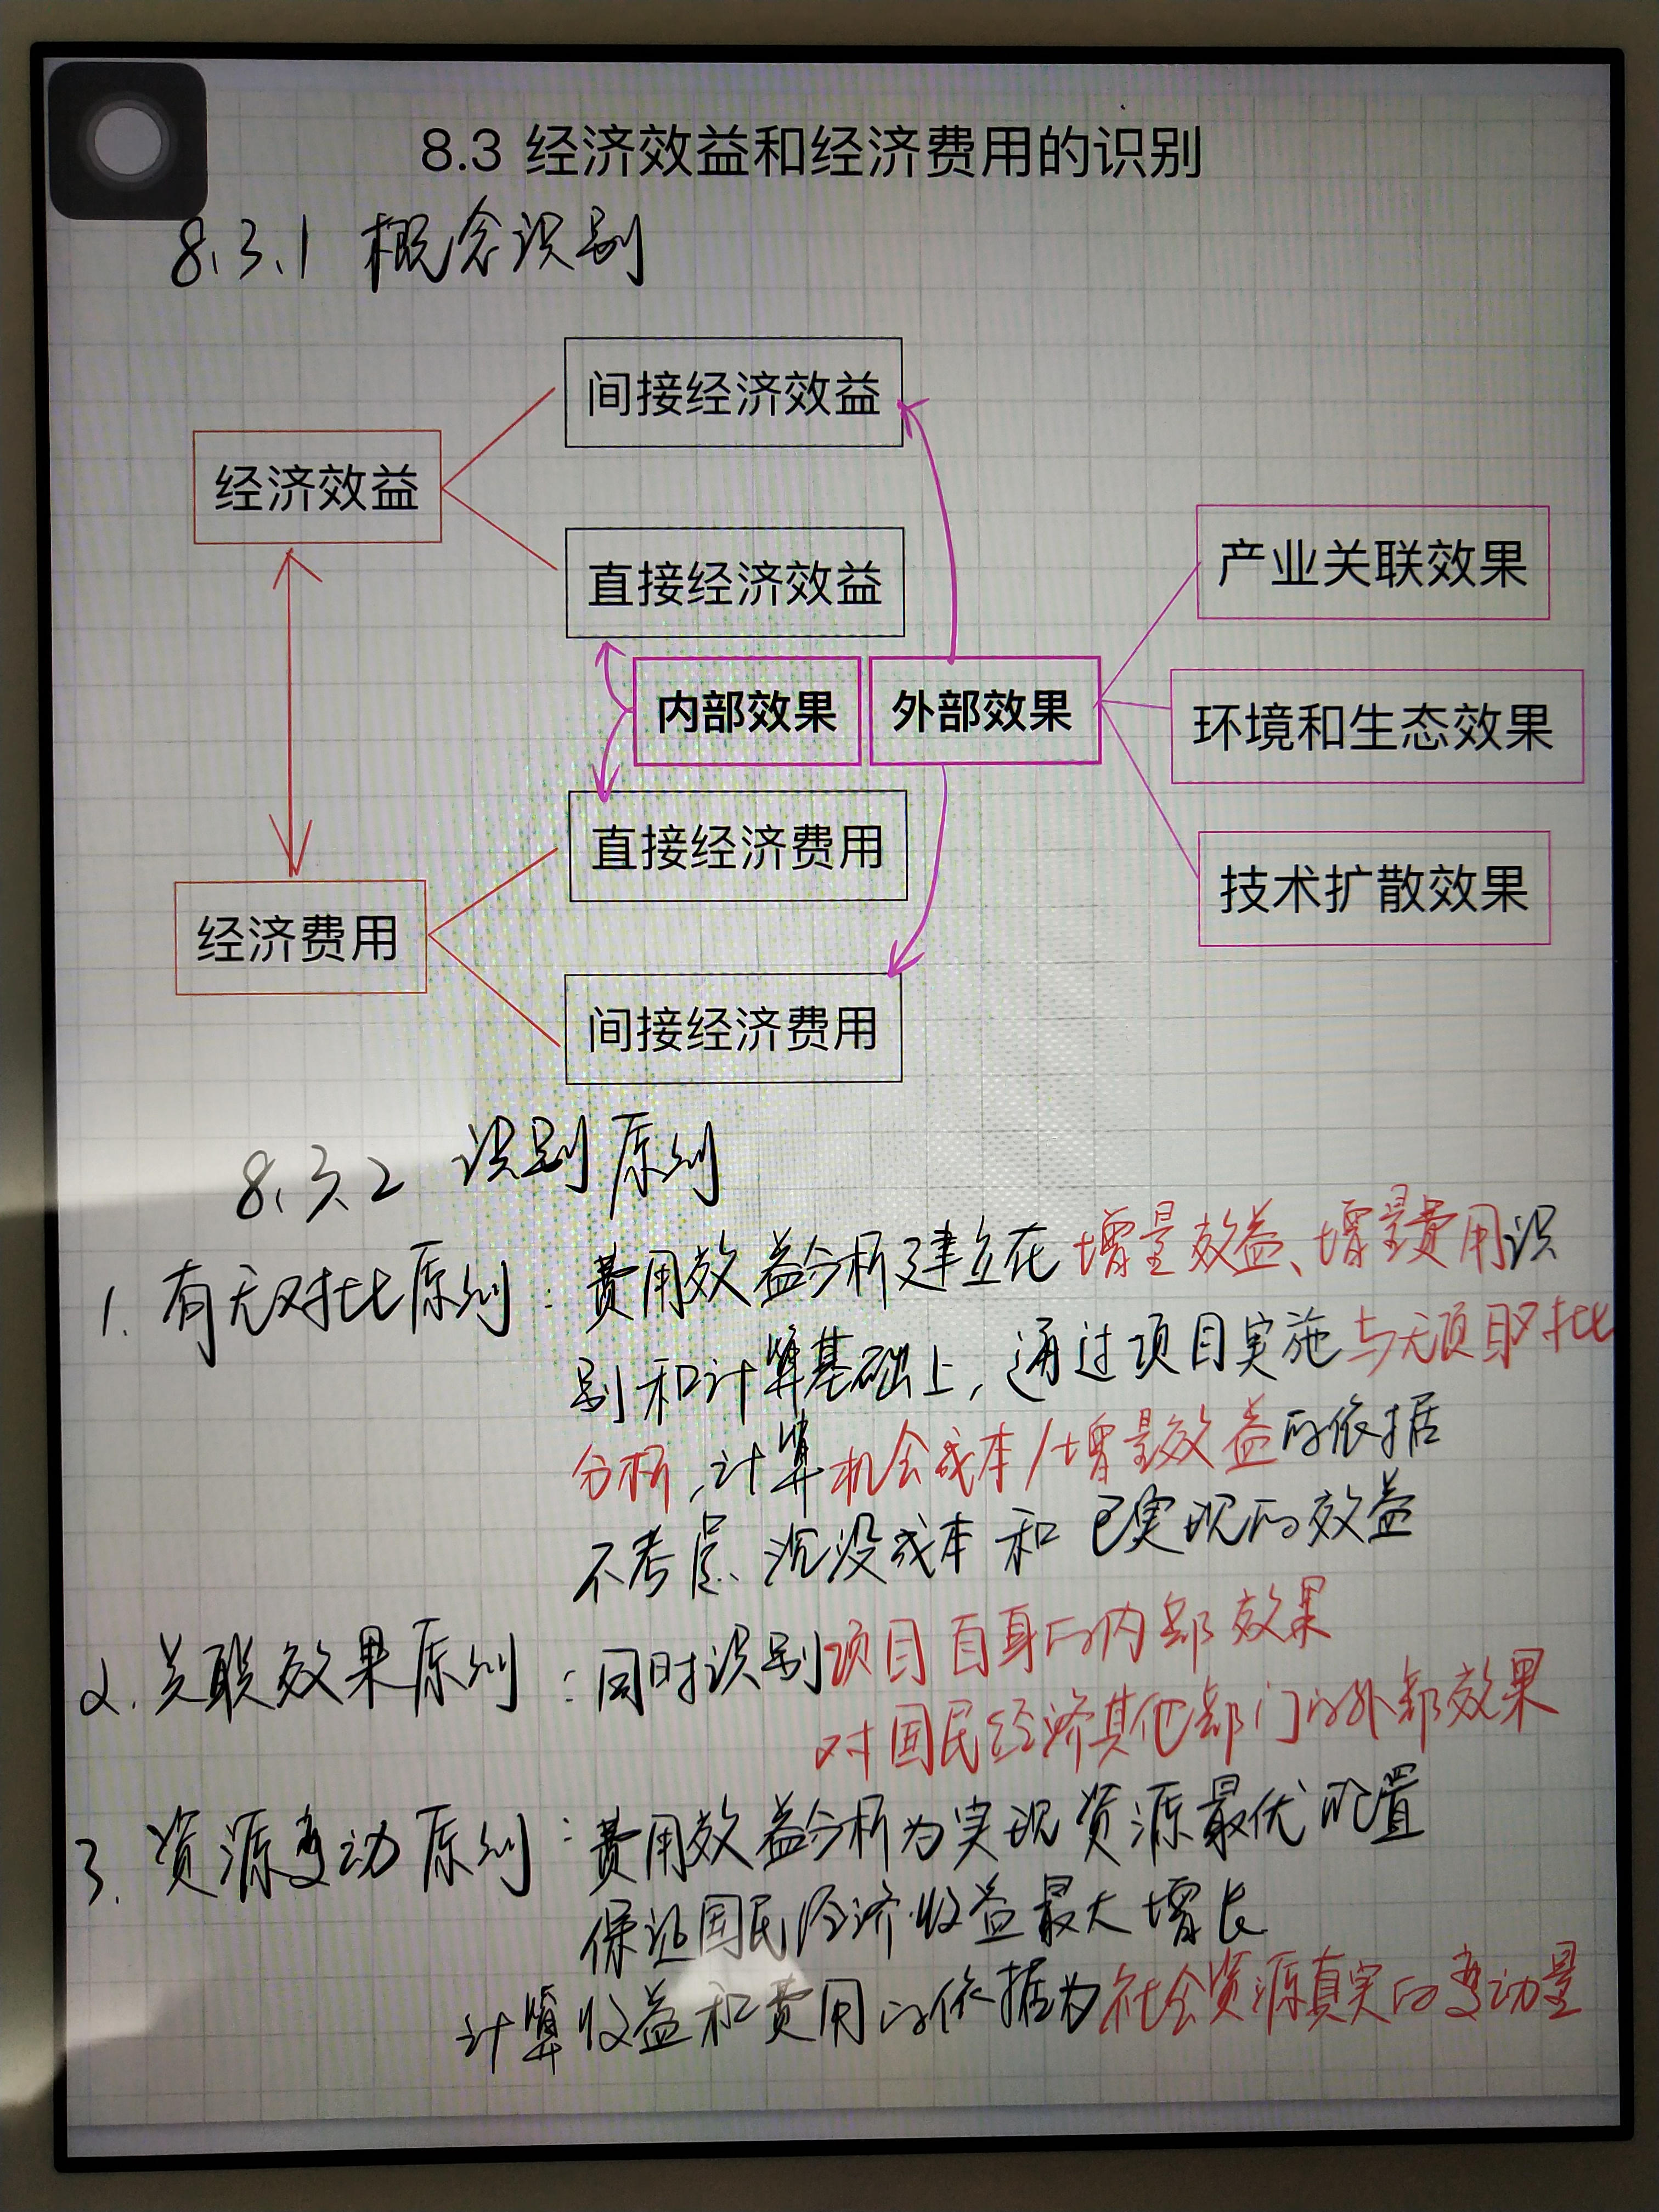 8.3 经济效益和经济费用的识别
8.3.1 概念识别
间接经济效益
经济效益
直接经济效益
产业关联效果
内部效果
外部效果
环境和生态效果
直接经济费用
技术扩散效果
经济费用
间接经济费用
8.3.2 识别原则
1. 有无对比原则：费用效益分析建立在增量效益、增量费用识
别和计算基础上，通过项目实施与无项目对比
分析，计算机会成本/增量效益的依据
不考虑、沉没成本和已实现的效益
2. 关联效果原则：同时识别项目自身的内部效果
对国民经济其他部门的外部效果
3. 资源变动原则：费用效益分析为实现资源最优配置
保证国民经济收益最大增长
计算收益和费用的依据为社会资源真实的变动量